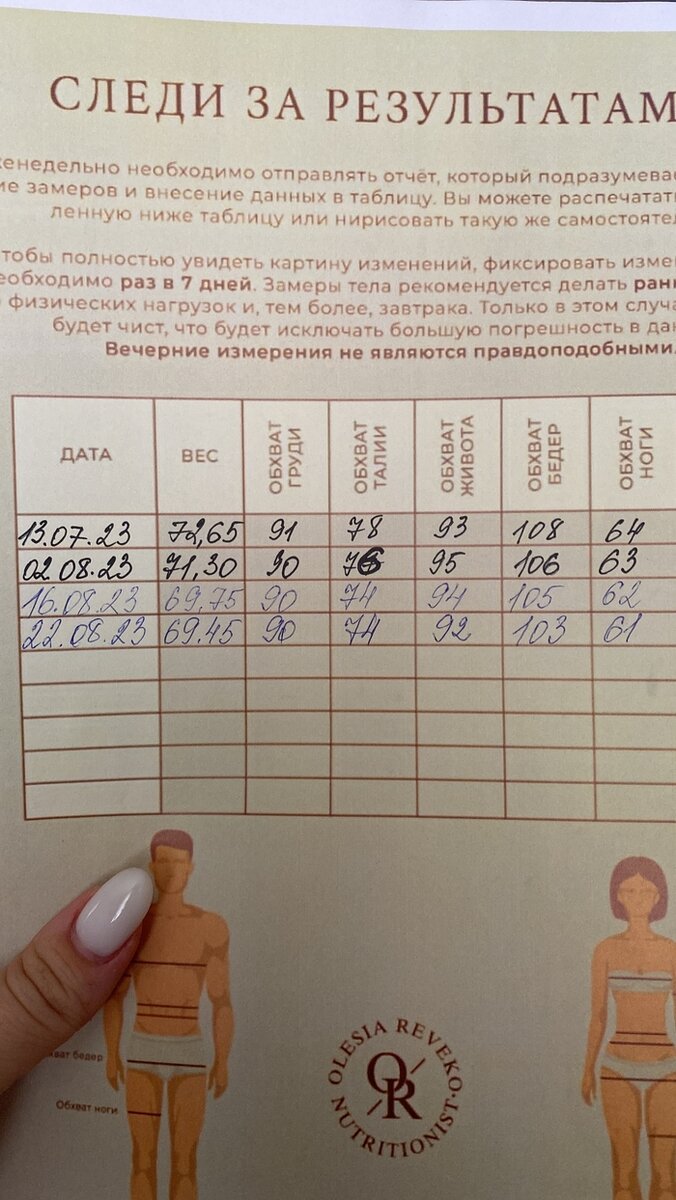 СЛЕДИ ЗА РЕЗУЛЬТАТАМ
женедельно необходимо отправлять отчёт, который подразумева
ие замеров и внесение данных в таблицу. Вы можете распечатат
ленную ниже таблицу или нирисовать такую же самостояте
тобы полностью увидеть картину изменений, фиксировать изме
еобходимо раз в 7 дней. Замеры тела рекомендуется делать ран
физических нагрузок и, тем более, завтрака. Только в этом случа
будет чист, что будет исключать большую погрешность в да
Вечерние измерения не являются правдоподобными.
ДАТА ВЕС ОБХВАТ ГРУДИ ОБХВАТ ТАЛИИ ОБХВАТ ЖИВОТА ОБХВАТ БЕДЕР ОБХВАТ НОГИ
13.07.23 72,65 91 78 93 108 64
02.08.23 71,30 90 76 95 106 63
16.08.23 69,75 90 74 94 105 62
22.08.23 69.45 90 74 92 103 61
хват бедер
Обхват ноги
OLESIA REVEKO
OR
NUTRITIONIST